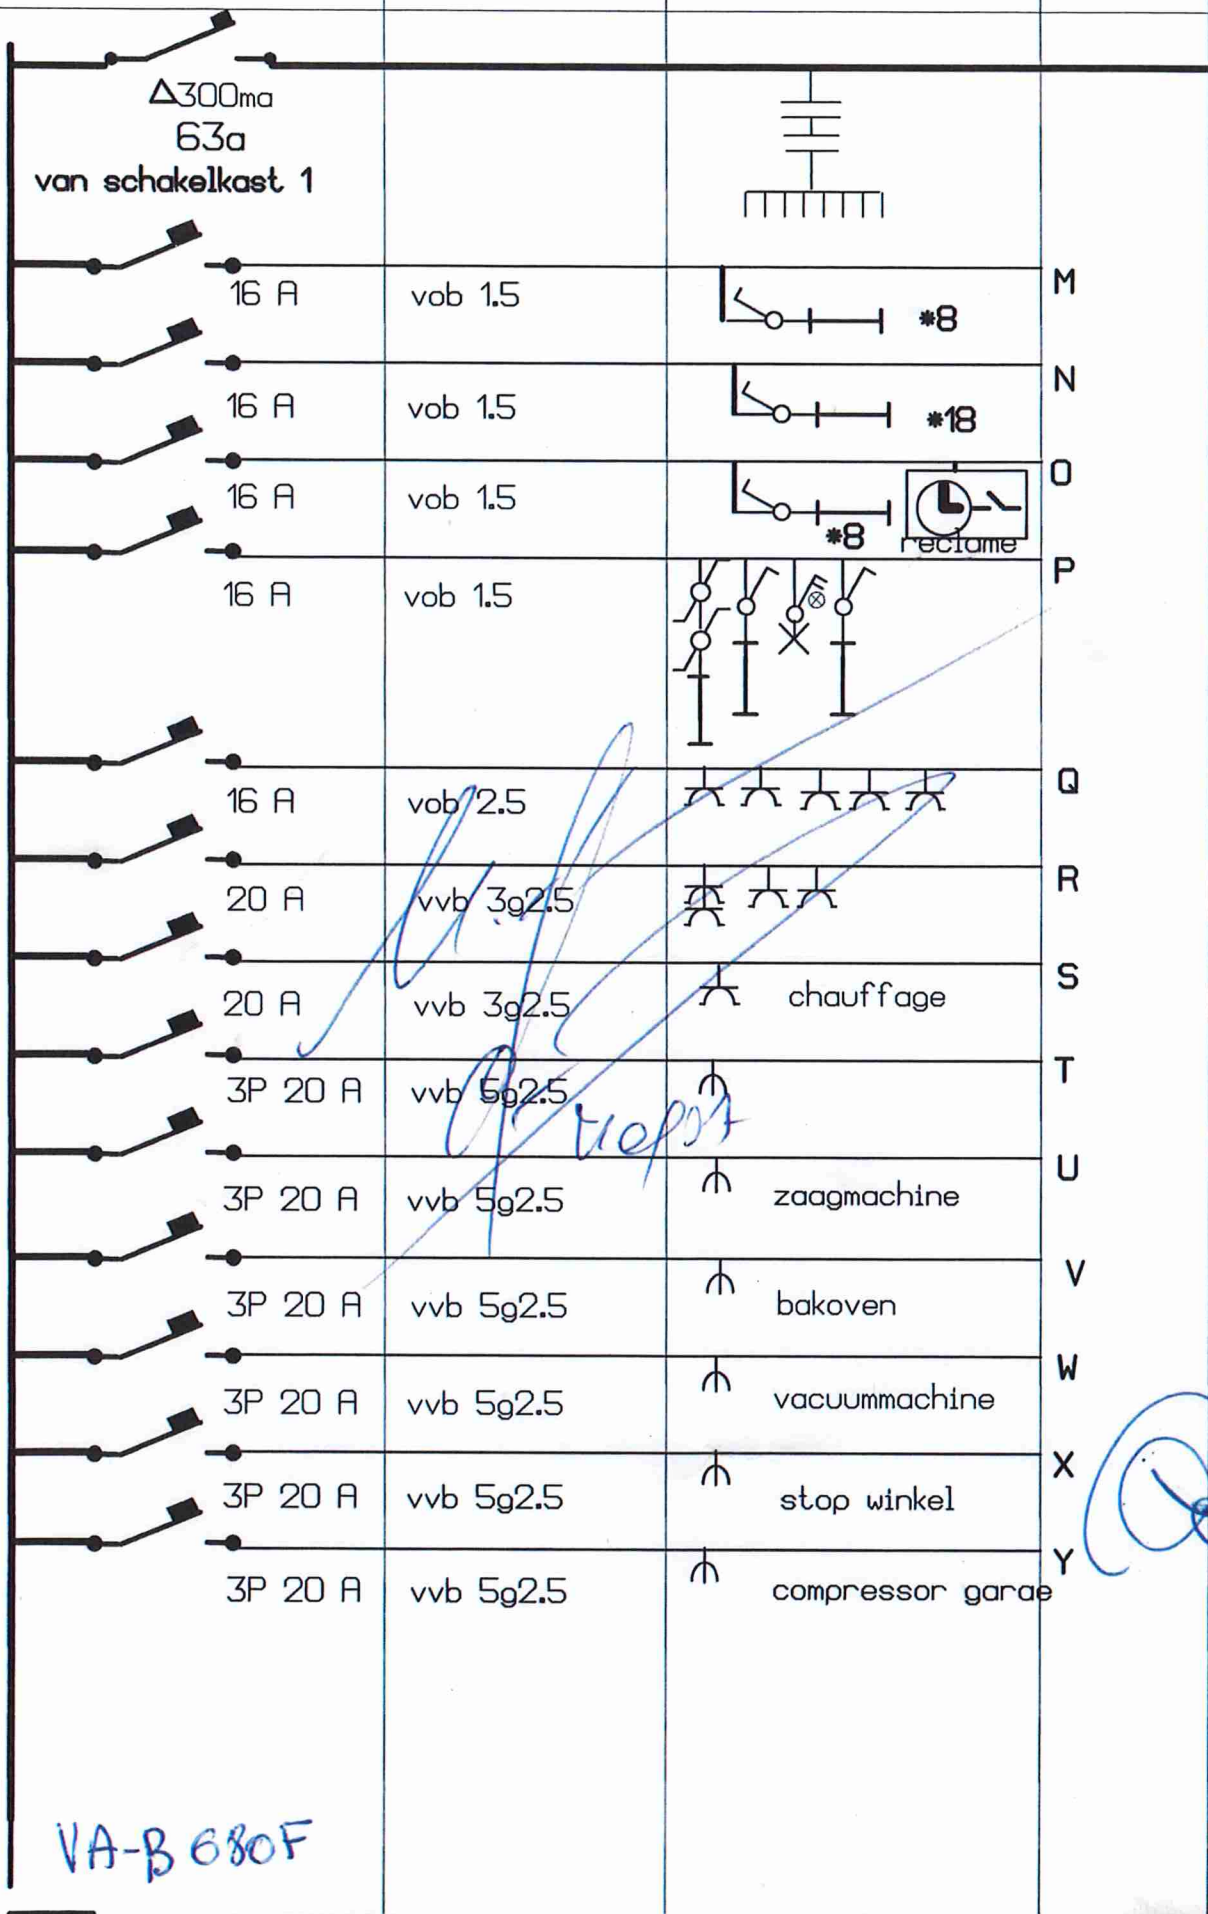 Δ300ma
63a
van schakelkast 1
16 A vob 1.5 *8 M
16 A vob 1.5 *18 N
16 A vob 1.5 *8 reclame O
16 A vob 1.5 P
16 A vob 2.5 Q
20 A vvb 3g2.5 R
20 A vvb 3g2.5 chauffage S
3P 20 A vvb 5g2.5 T
3P 20 A vvb 5g2.5 zaagmachine U
3P 20 A vvb 5g2.5 bakoven V
3P 20 A vvb 5g2.5 vacuummachine W
3P 20 A vvb 5g2.5 stop winkel X
3P 20 A vvb 5g2.5 compressor garae Y
VA-B 680F